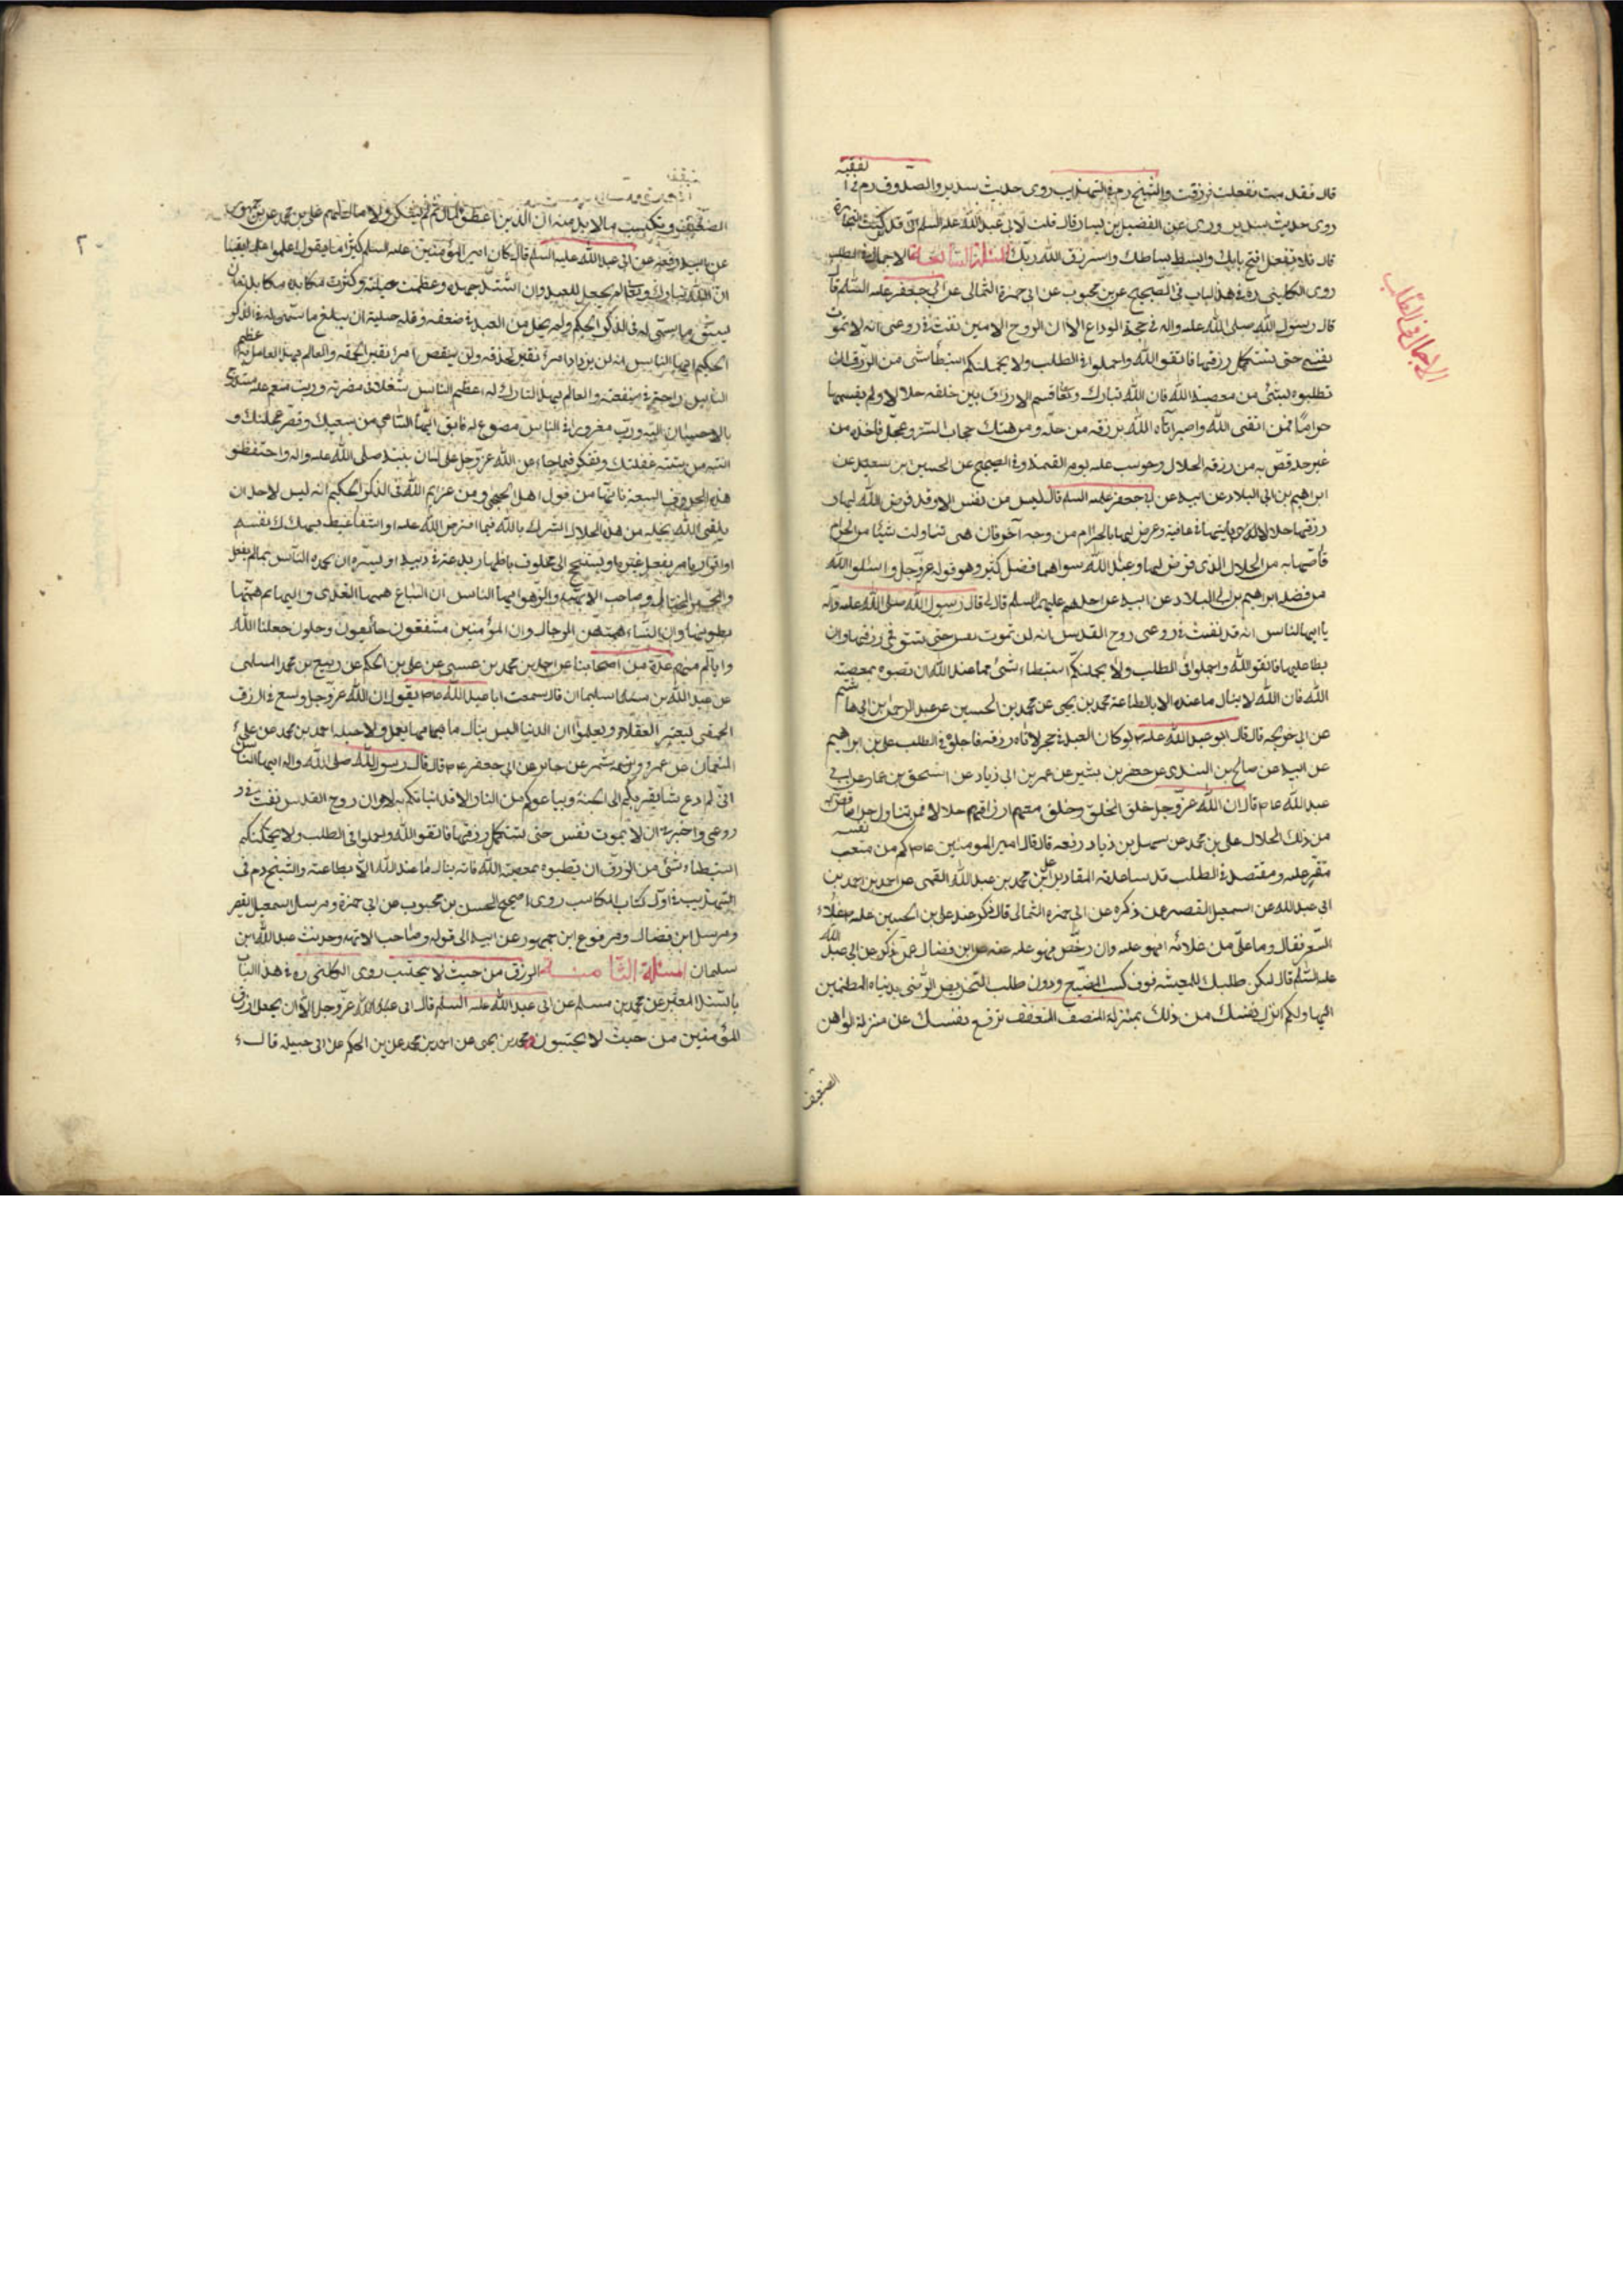 الفقيه
قال فقلت ففعلت فرزقت والشيخ ره في التهذيب روى حديث سدير والصدوق ره في
روى حديث سدير وروى عن الفضيل بن يسار قال قلت لابي عبد الله عليه السلام اني قد كففت عن التجارة
قال فلا تفعل افتح بابك وابسط بساطك واسترزق الله ربك المسئلة السابعة الاجمال في الطلب
روى الكليني ره في هذا الباب في الصحيح عن ابن محبوب عن ابي حمزة الثمالي عن ابي جعفر عليه السلام قال
قال رسول الله صلى الله عليه واله في حجة الوداع الا ان الروح الامين نفث في روعي انه لا تموت
نفس حتى تستكمل رزقها فاتقوا الله واجملوا في الطلب ولا يحملنكم استبطاء شئ من الرزق ان
تطلبوه بشئ من معصية الله فان الله تبارك وتعالى قسم الارزاق بين خلقه حلالا ولم يقسمها
حراما فمن اتقى الله وصبر اتاه الله برزقه من حله ومن هتك حجاب الستر وعجل فاخذه من
غير حله قص به من رزقه الحلال وحوسب عليه يوم القيمة وفي الصحيح عن الحسين بن سعيد عن
ابراهيم بن ابي البلاد عن ابيه عن ابي جعفر عليه السلام قال ليس من نفس الا وقد فرض الله لها
رزقها حلالا يأتيها في عافية وعرض لها بالحرام من وجه آخر فان هي تناولت شيئا من الحرام
قاصها به من الحلال الذي فرض لها وعند الله سواهما فضل كثير وهو قوله عز وجل واسئلوا الله
من فضله ابراهيم بن ابي البلاد عن ابيه عن احدهم عليهم السلام قال قال رسول الله صلى الله عليه واله
يا ايها الناس انه قد نفث في روعي روح القدس انه لن تموت نفس حتى تستوفي رزقها وان
بطا عليها فاتقوا الله واجملوا في الطلب ولا يحملنكم استبطاء شئ مما عند الله ان تصيبوه بمعصية
الله فان الله لا ينال ما عنده الا بالطاعة محمد بن يحيى عن محمد بن الحسين عن عبد الرحمن بن ابي هاشم
عن ابي خديجة قال قال ابو عبد الله عليه لو كان العبد في حجر لاتاه رزقه فاجملوا في الطلب علي بن ابراهيم
عن ابيه عن صالح بن السندي عن جعفر بن بشير عن عمر بن ابي زياد عن اسحق بن عمار عن ابي
عبد الله قال ان الله عز وجل خلق الخلق وخلق معهم ارزاقهم حلالا فمن تناول حراما قص به
من ذلك الحلال علي بن محمد عن سهل بن زياد رفعه قال قال امير المومنين كم من متعب نفسه
مقتر عليه ومقتصد في الطلب قد ساعدته المقادير علي بن محمد بن عبد الله القمي عن احمد بن
ابي عبد الله عن اسمعيل القصير عمن ذكره عن ابي حمزة الثمالي قال ذكر عند علي بن الحسين عليه غلاء
السعر فقال وما علي من غلائه ان غلا فهو عليه وان رخص فهو عليه عنه عن ابن فضال عمن ذكره عن ابي عبد الله
عليه السلام قال ليكن طلبك للمعيشة فوق كسب المضيع ودون طلب الحريص الراضي بدنياه المطمئن
اليها ولكن انزل نفسك من ذلك بمنزلة المنصف المتعفف ترفع نفسك عن منزلة الواهن
الضعيف
الاجمال في الطلب
٢٠
الضعيف وتكتسب ما لا بد منه ان الذين اعطوا المال ثم لم يشكروا لا مال لهم علي بن محمد عن ابن جمهور
عن ابيه رفعه عن ابي عبد الله عليه السلام قال كان امير المؤمنين عليه السلام كثيرا ما يقول اعلموا علما يقينا
ان الله تبارك وتعالى لم يجعل للعبد وان اشتد جهده وعظمت حيلته وكثرت مكابدته ان
يسبق ما سمي له في الذكر الحكيم ولم يحل من العبد في ضعفه وقلة حيلته ان يبلغ ما سمي له في الذكر
الحكيم ايها الناس انه لن يزداد امرؤ نقيرا بحذقه ولن ينقص امرؤ نقيرا لحمقه والعالم بهذا العامل به اعظم
الناس راحة في منفعته والعالم بهذا التارك له اعظم الناس شغلا في مضرته ورب منعم عليه مستدرج
بالاحسان اليه ورب مغرور في الناس مصنوع له فابق ايها الساعي من سعيك وقصر من عجلتك و
انتبه من سنة غفلتك وتفكر فيما جاء عن الله عز وجل على لسان نبيه صلى الله عليه واله واحتفظوا
هذه الحروف السبعة فانها من قول اهل الحجى ومن عزائم الله في الذكر الحكيم انه ليس لاحد ان
يلقى الله بخلة من هذه الخلال الشرك بالله فيما افترض الله عليه او اشفاء غيظ بهلاك نفسه
او اقرار بامر يفعل غيره او يستنجح الى مخلوق باظهار بدعة في دينه او يسره ان يحمده الناس بما لم يفعل
والمتجبر المختال وصاحب الابهة والزهو ايها الناس ان السباع همتها التعدي والبهائم همتها
بطونها وان النساء همتهن الرجال وان المؤمنين مشفقون خائفون وجلون جعلنا الله
واياكم منهم عدة من اصحابنا عن احمد بن محمد بن عيسى عن علي بن الحكم عن ربيع بن محمد المسلي
عن عبد الله بن سليمان قال سمعت ابا عبد الله يقول ان الله عز وجل وسع في ارزاق
الحمقى ليعتبر العقلاء ويعلموا ان الدنيا ليس ينال ما فيها بعمل ولا حيلة احمد بن محمد عن علي بن
النعمان عن عمرو بن شمر عن جابر عن ابي جعفر قال قال رسول الله صلى الله عليه واله ايها الناس
اني لم ادع شيئا يقربكم الى الجنة ويباعدكم من النار الا قد انبأتكم به الا وان روح القدس نفث في
روعي واخبرني ان لا يموت نفس حتى تستكمل رزقها فاتقوا الله واجملوا في الطلب ولا يحملنكم
استبطاء شئ من الرزق ان تطلبوه بمعصية الله فانه لا ينال ما عند الله الا بطاعته والشيخ ره في
التهذيب في اول كتاب المكاسب روى صحيح الحسن بن محبوب عن ابي حمزة ومرسل اسمعيل القصير
ومرسل ابن فضال ومرفوع ابن جمهور عن ابيه الى قوله وصاحب الابهة وحديث عبد الله بن
سليمان المسئلة الثامنة الرزق من حيث لا يحتسب روى الكليني ره في هذا الباب
بالسند المعتبر عن محمد بن مسلم عن ابي عبد الله عليه السلام قال ابى الله عز وجل الا ان يجعل ارزاق
المؤمنين من حيث لا يحتسبون محمد بن يحيى عن احمد بن محمد عن علي بن الحكم عن ابي جميلة قال